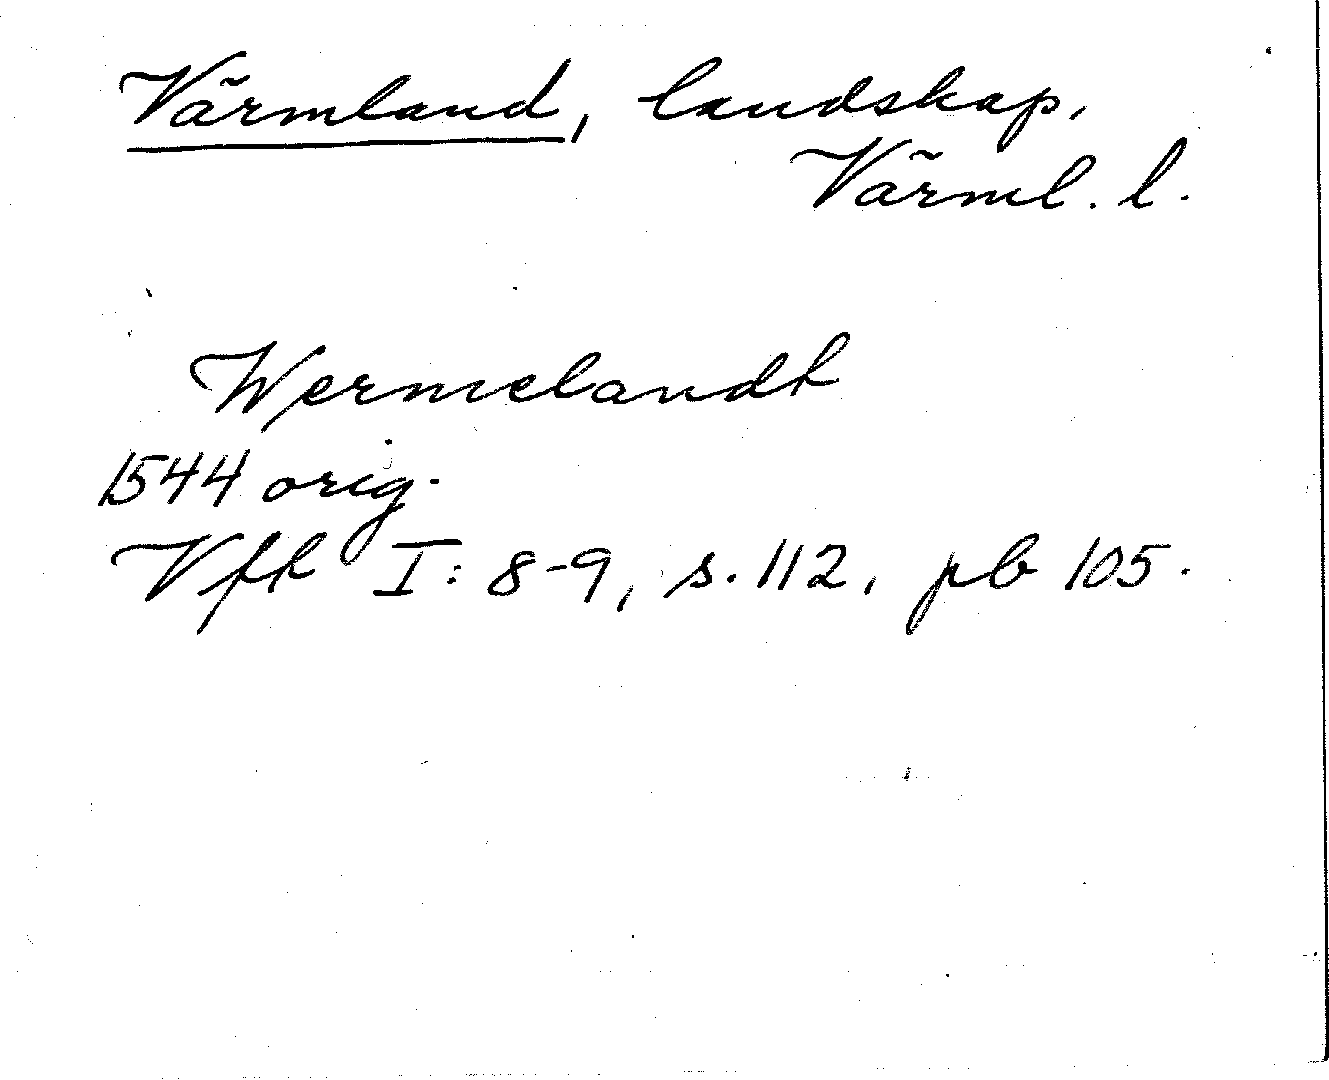 Värmland, landskap,
Värml. l.
Wermelandt
1544 orig.
Vfk I: 8-9, s. 112, pb 105.